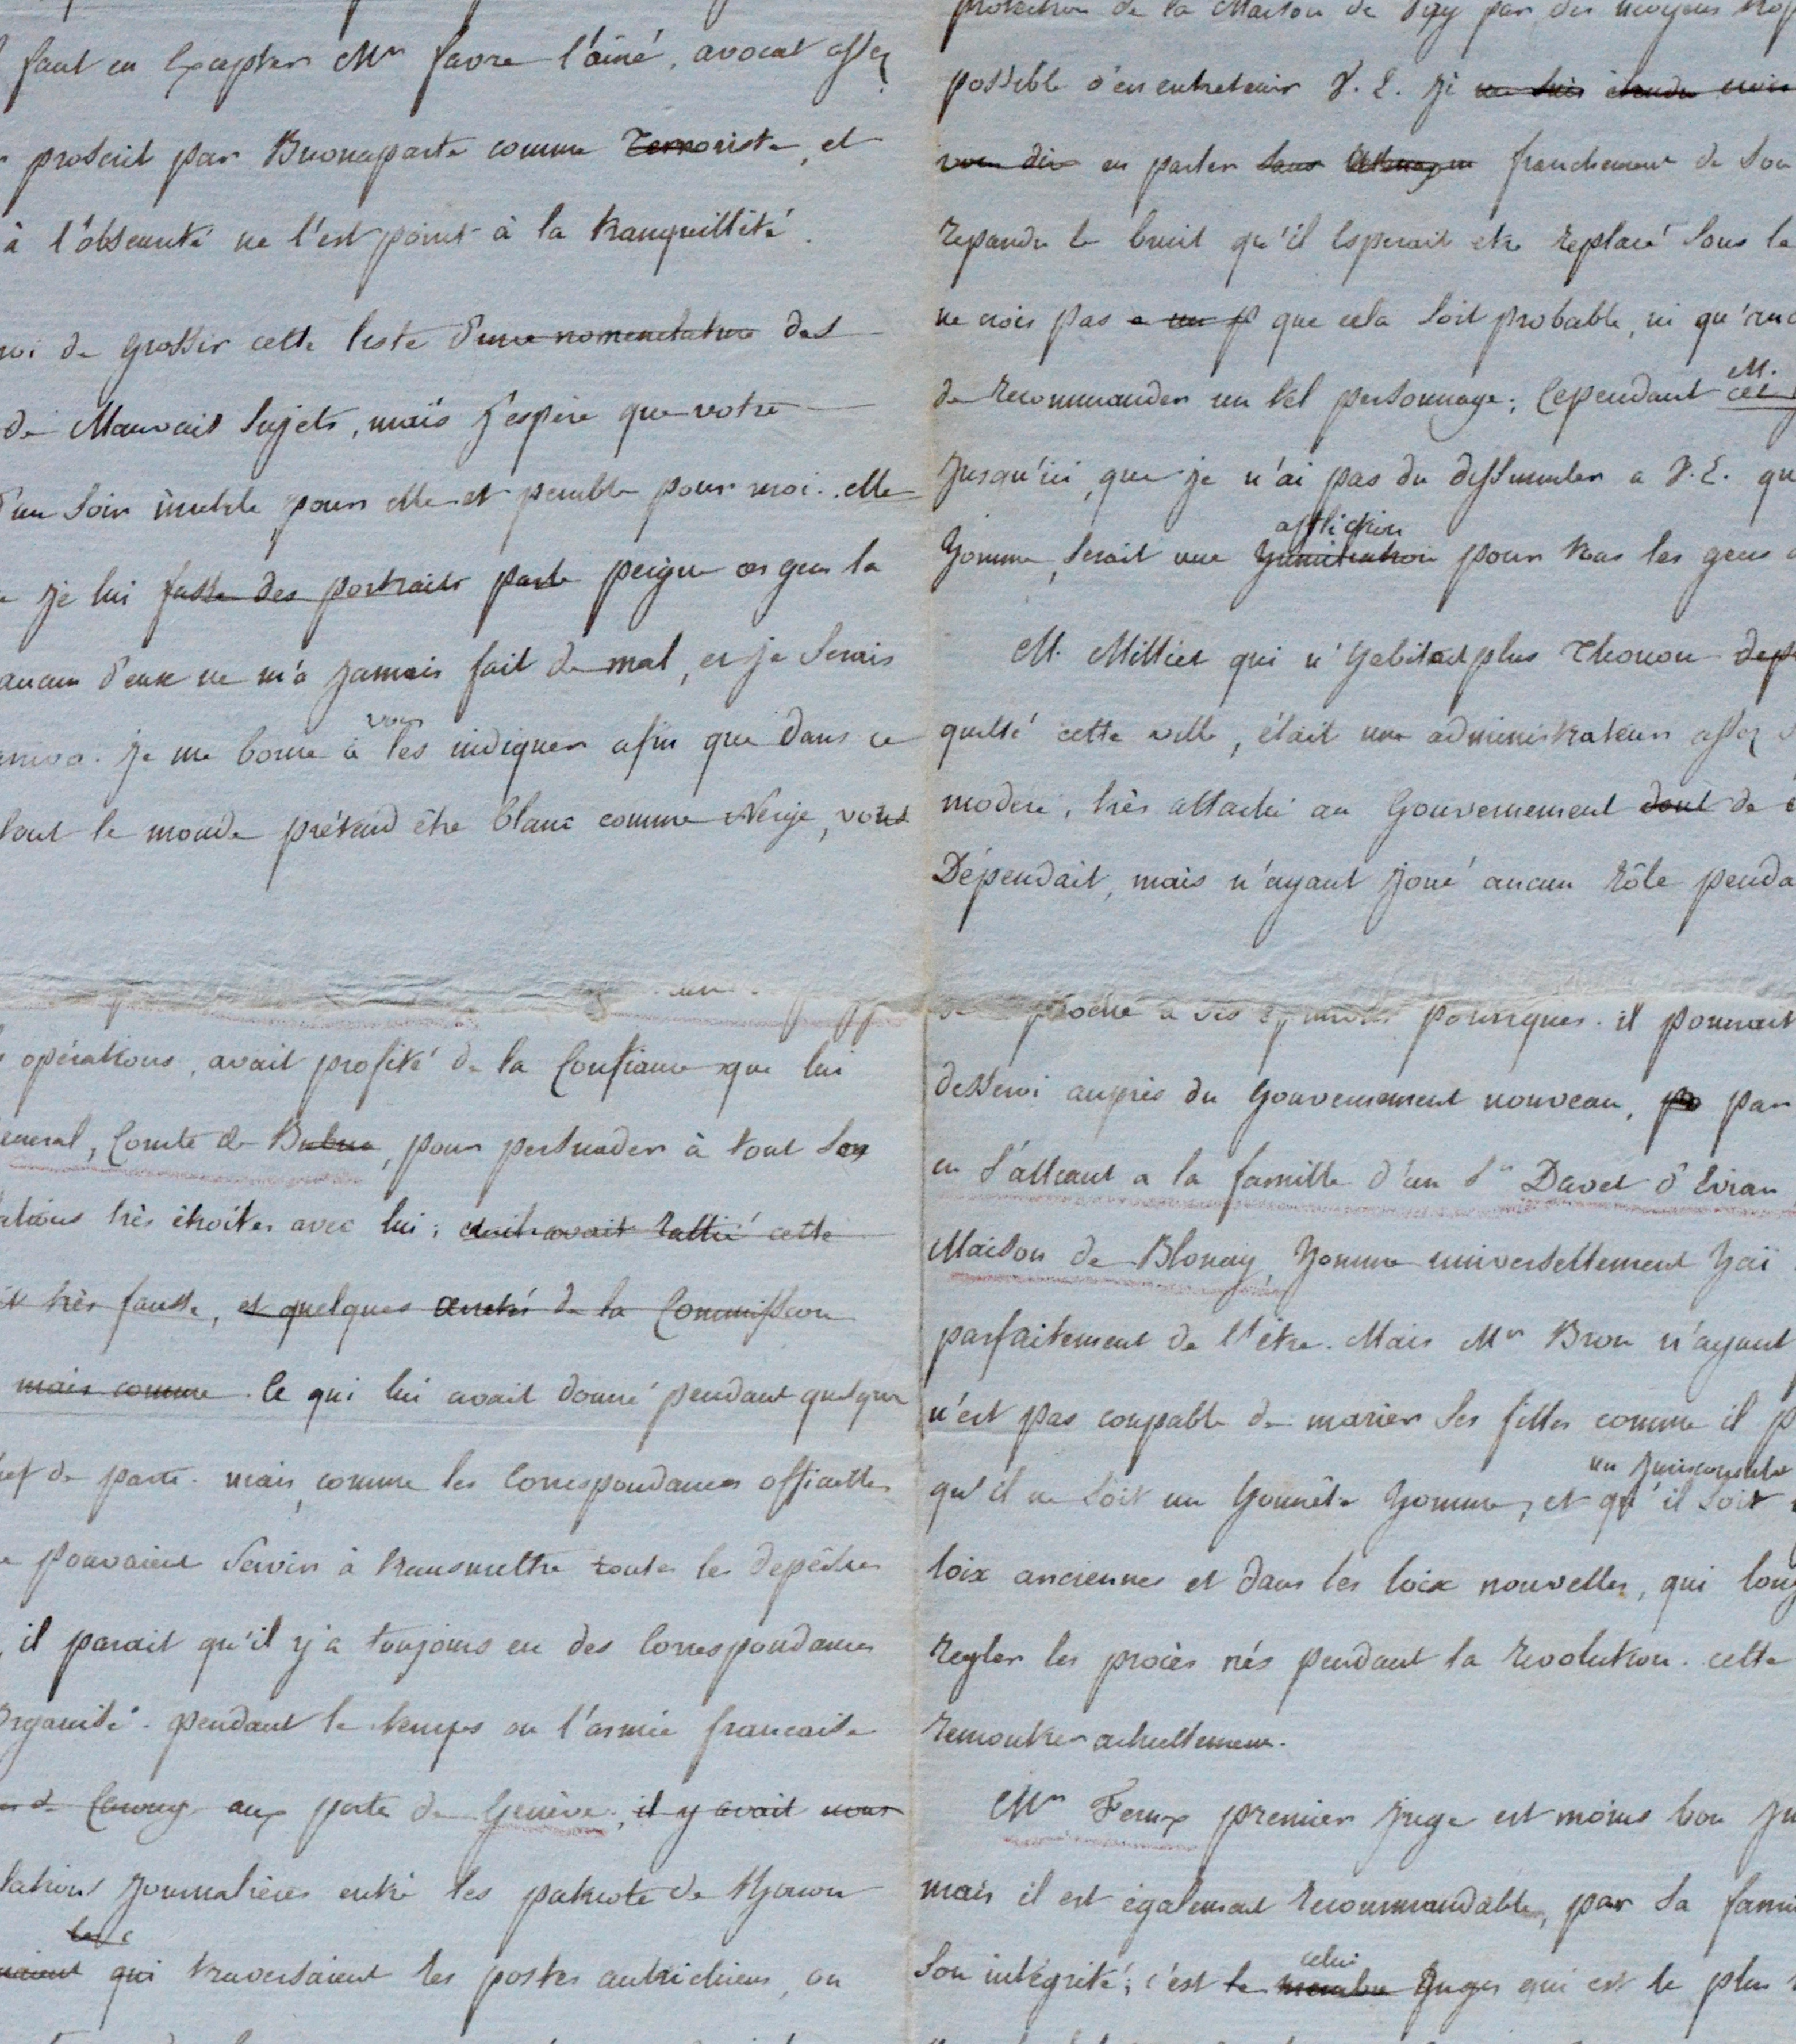 faut en Excepter Mr favre l'ainé, avocat assez
proscrit par Buonaparte comme Terroriste, et
à l'obscurité ne l'est point à la tranquillité.
moi de grossir cette liste d'une nomenclature des
de Mauvais Sujets, mais j'espère que votre
d'un soin inutile pour elle et penible pour moi. elle
je lui fasse des portraits peigne ces gens la
aucun d'eux ne m'a jamais fait de mal, et je serais
je me borne à vous les indiquer afin que dans ce
tout le monde prétend être blanc comme Neige, vous
opérations, avait profité de la Confiance que lui
Comte de Bubna, pour persuader à tout son
très étroites avec lui; avait rallié cette
très fausse, et quelques arretés de la Commission
mais comme ce qui lui avait donné pendant quelque
de parti. mais, comme les Correspondances officielles
pouvaient servir à transmettre toutes les depêches
il parait qu'il y a toujours eu des Correspondances
organisé. pendant le temps ou l'armée francaise
aux porte de Genève, il y avait
journalières entre les patriote de Thonon
qui traversaient les postes autrichiens, ou
protection de la Maison de par des moyens
possible d'en entretenir V. E. Je
en parler franchement de son
repandu le bruit qu'il Esperait etre replacé sous le
ne crois pas que cela soit probable, ni
de recommander un tel personnage; Cependant M. cet
Jusqu'ici, que je n'ai pas du dissimuler a V. E.
homme, serait une affliction humiliation pour tous les gens
M. Milliet qui n'habitait plus Thonon
quitté cette ville, était un administrateur assez
moderé, très attaché au Gouvernement dont de
Dépendait, mais n'ayant joué aucun rôle
politiques. il pourrait
desservi auprès du Gouvernement nouveau, par
en s'alliant a la famille d'un Sr Davet d'Evian
Maison de Blonay homme universellement haï
parfaitement de l'être. Mais Mr Bron n'ayant
n'est pas coupable de marier ses filles comme il
qu'il ne soit un honnête homme, et qu'il soit un Jurisconsulte
loix anciennes et dans les loix nouvelles, qui
regler les procès nés pendant la revolution. cette
remontrer actuellement.
Mr premier juge est moins bon
mais il est également recommandable, par sa
son intégrité; c'est le membre celui Juges qui est le plus